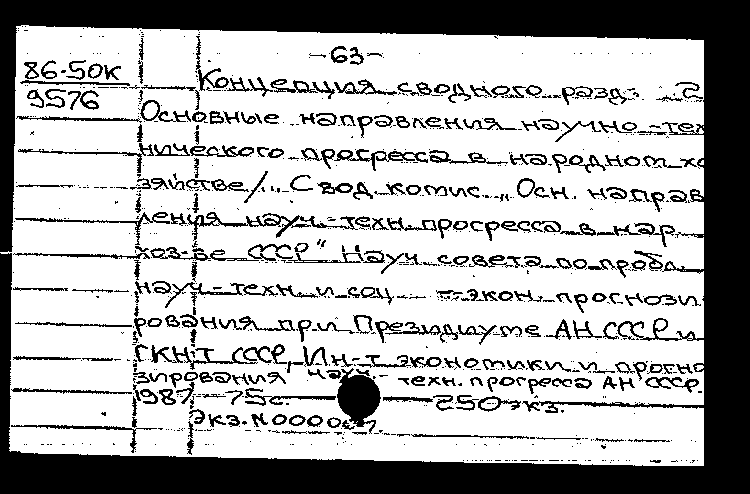 -63-
86-50к
9576
Концепция сводного разд.
Основные направления научно-тех
нического прогресса в народном хо
зяйстве/ Свод. комис. „Осн. направ
ления науч.-техн. прогресса в нар.
хоз-ве СССР" Науч совета по пробл.
науч-техн. и соц - экон. прогнози
рования при Президиуме АН СССР и
ГКНТ СССР, Ин-т экономики и прогно
зирования науч.- техн. прогресса АН СССР.
1987 75с. 250 экз.
Экз. N0000